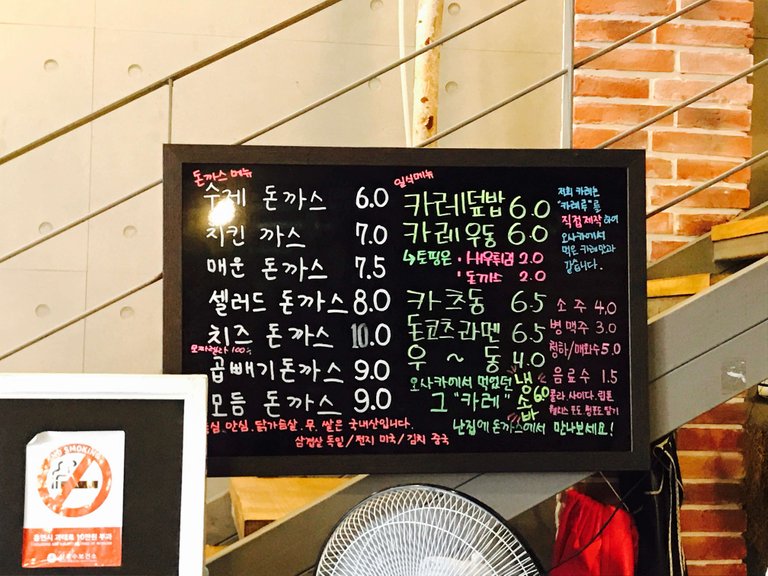 돈까스 메뉴
수제 돈까스 6.0
치킨 까스 7.0
매운 돈까스 7.5
샐러드 돈까스 8.0
치즈 돈까스 10.0
모짜렐라 100%
곱빼기돈까스 9.0
모듬 돈까스 9.0
일식메뉴
카레덮밥 6.0
카레우동 6.0
↳토핑은 · 새우튀김 2.0
· 돈까스 2.0
카츠동 6.5
돈코츠라멘 6.5
우 ~ 동 4.0
오사카에서 먹었던
그 "카레"
냉소바 6.0
저희 카레는
"카레루"를
직접제작하여
오사카에서
먹은 카레맛과
같습니다.
소주 4.0
병맥주 3.0
청하/매화수 5.0
음료수 1.5
콜라. 사이다. 립톤
난집에 돈까스에서 만나보세요!
등심. 안심. 닭가슴살. 무. 쌀은 국내산입니다.
삼겹살 독일/전지 미국/김치 중국
NO SMOKING
용인시 과태료 10만원 부과